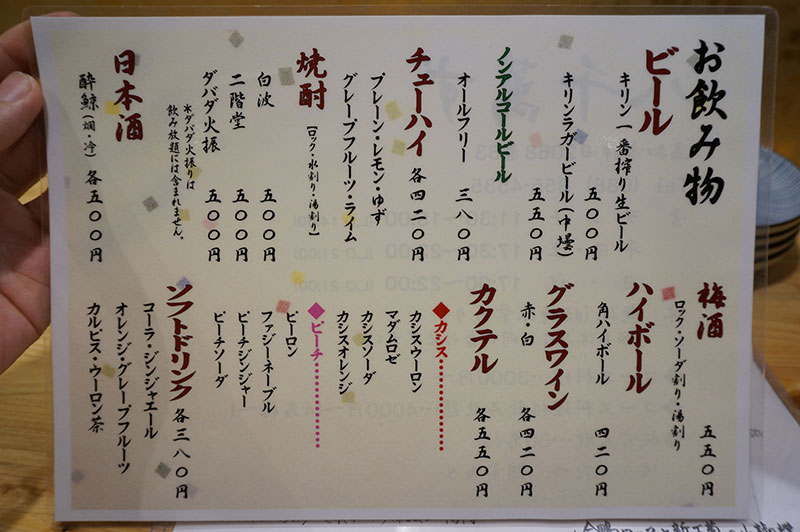 お飲み物
ビール
キリン一番搾り生ビール
五〇〇円
キリンラガービール(中壜)
五五〇円
ノンアルコールビール
オールフリー
三八〇円
チューハイ 各四二〇円
プレーン・レモン・ゆず
グレープフルーツ・ライム
焼酎
【ロック・水割り・湯割り】
白波 五〇〇円
二階堂 五〇〇円
ダバダ火振 五〇〇円
*ダバダ火振りは
飲み放題には含まれません。
日本酒
酔鯨(燗・冷) 各五〇〇円
梅酒
ロック・ソーダ割り・湯割り
五五〇円
ハイボール
角ハイボール 四二〇円
グラスワイン
赤・白 各四二〇円
カクテル 各五五〇円
◆カシス…………………
カシスウーロン
マダムロゼ
カシスソーダ
カシスオレンジ
◆ピーチ…………………
ピーロン
ファジーネーブル
ピーチジンジャー
ピーチソーダ
ソフトドリンク 各三八〇円
コーラ・ジンジャエール
オレンジ・グレープフルーツ
カルピス・ウーロン茶